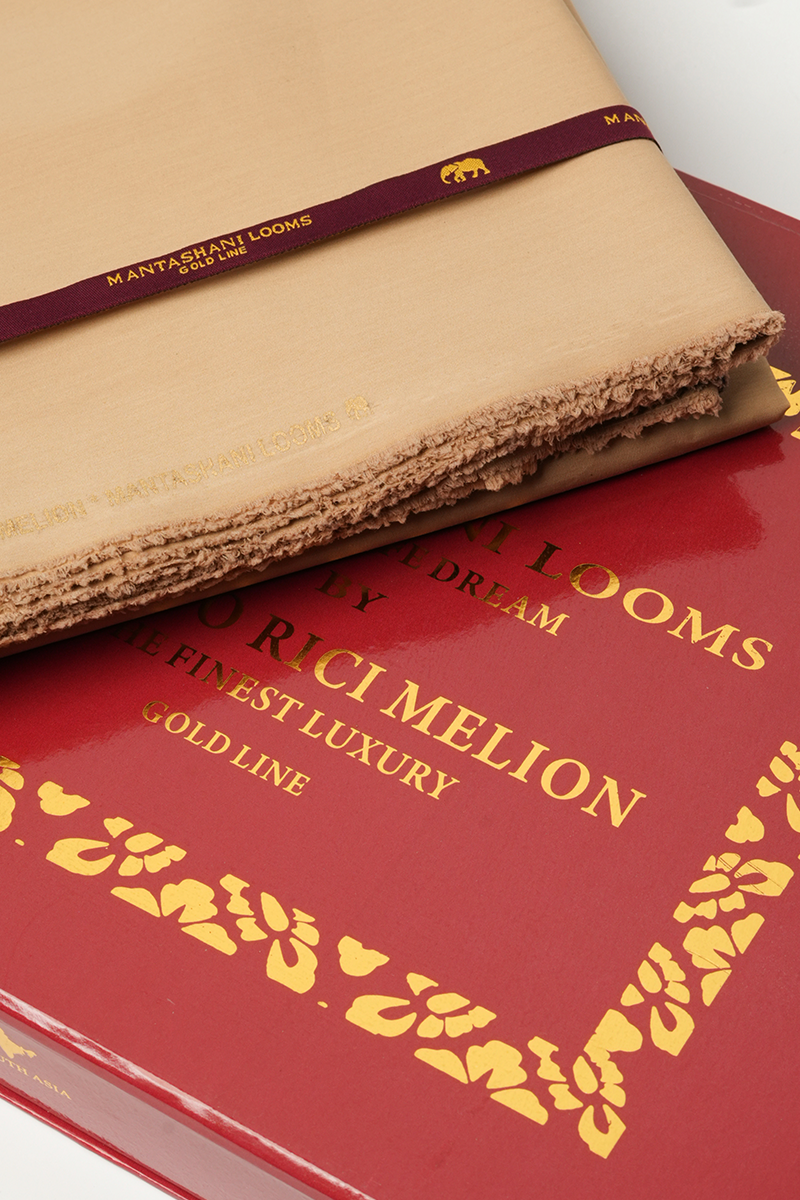 MAN
MANTASHANI LOOMS
GOLD LINE
MELION * MANTASHANI LOOMS
NI LOOMS
DREAM
BY
O RICI MELION
THE FINEST LUXURY
GOLD LINE
UTH ASIA